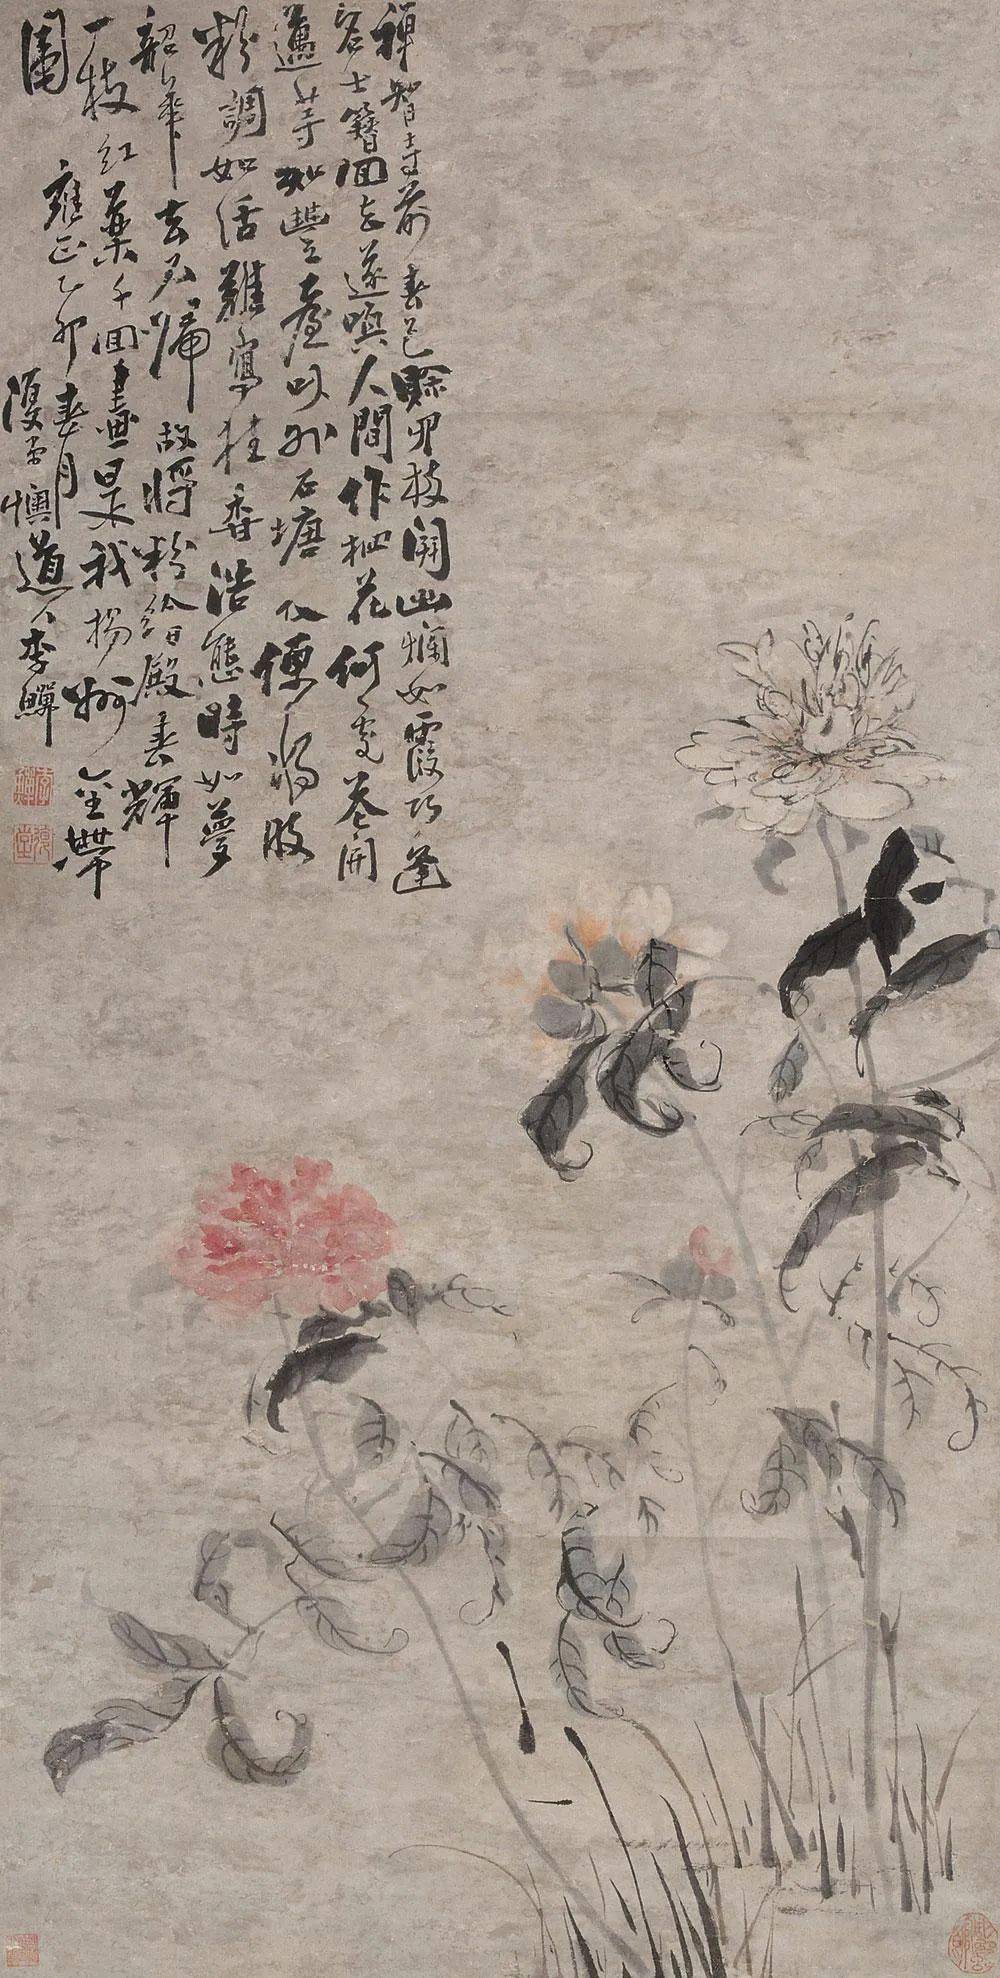 禪智寺前春色賒四枝開出爛如霞巧逢
名士簪回去遂喚人間作相花何處花開
邁等豐臺以外石塘便將脂
粉調如活難寫狂香浩態時如夢
韶華去不歸故將粉繪殿春輝
一枝紅藥千回畫是我揚州金帶
圍
雍正乙卯春月
復堂懊道人李鱓
李鱓
復堂